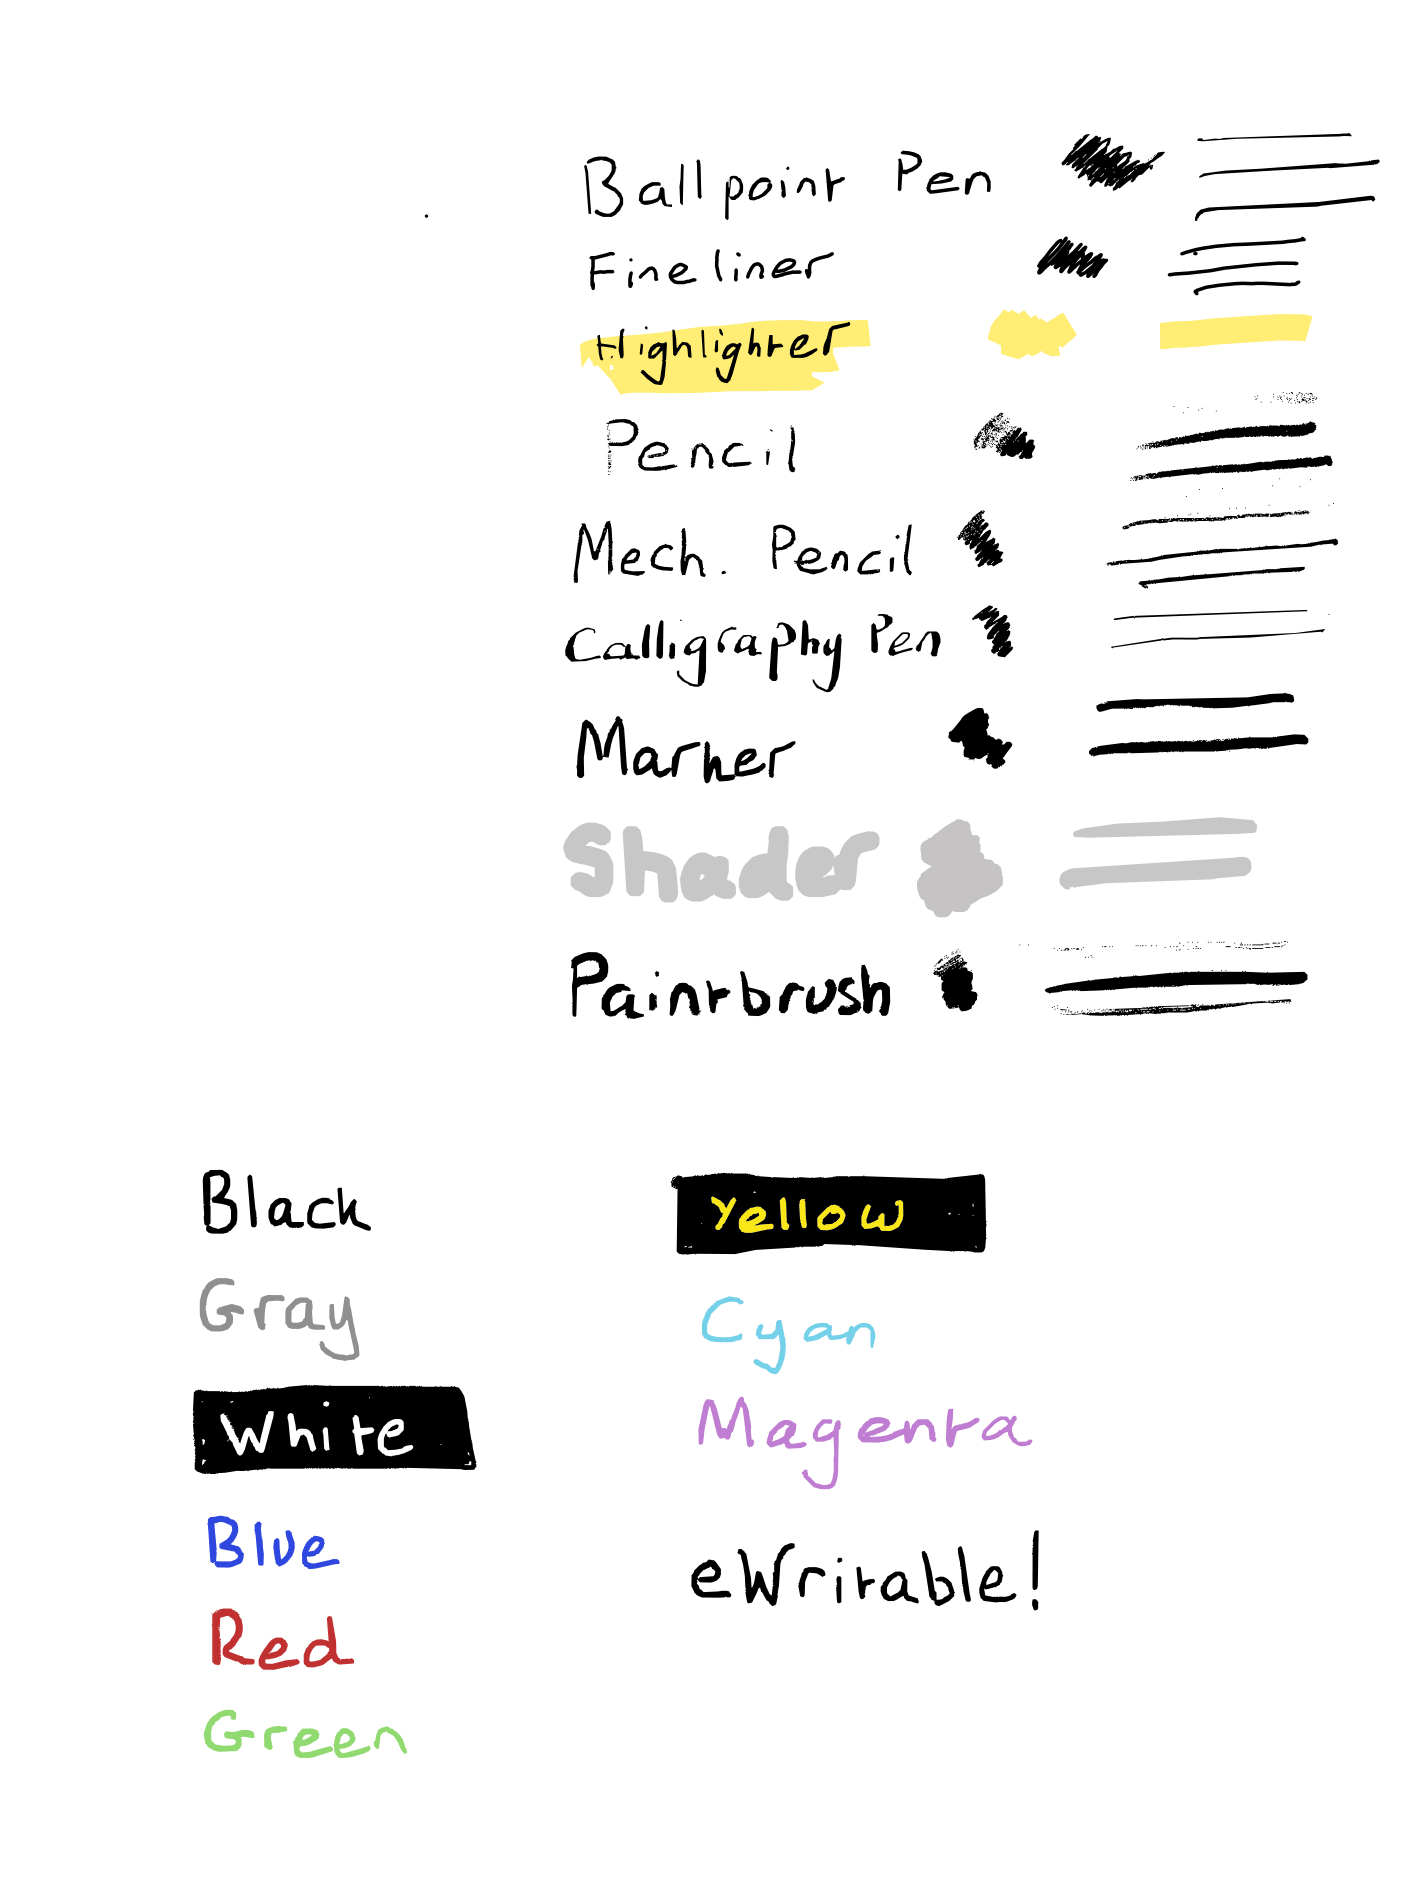 Ballpoint Pen
Fineliner
Highlighter
Pencil
Mech. Pencil
Calligraphy Pen
Marker
Shader
Paintbrush
Black
Gray
White
Blue
Red
Green
Yellow
Cyan
Magenta
eWritable!